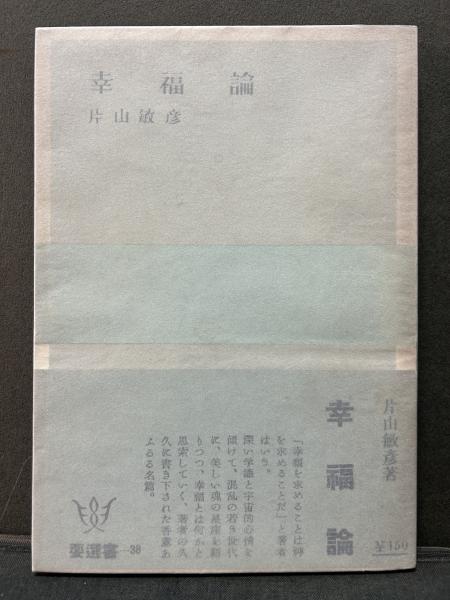 幸福論
片山敏彦
片山敏彦著
幸福論
「幸福を求めることは神
を求めることだ」と著者
はいう。
深い学識と宇宙的心情を
傾けて、混乱の若き世代
に、美しい魂の星座を
りつつ、幸福とは何かと
思索していく、著者の久
久に書き下された香氣あ
ふるる名篇。
要選書—38
¥150